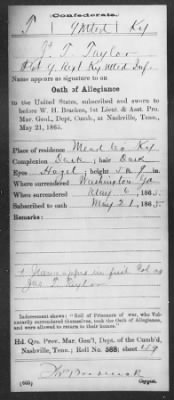 Confederate.
T 9 Mtd Ky
Jas T Taylor
Pvt G Regt Ky Mtd Inf.
Name appears as signature to an
Oath of Allegiance
to the United States, subscribed and sworn to
before W. H. Bracken, 1st Lieut & Asst. Pro.
Mar. Genl., Dept. Cumb., at Nashville, Tenn.,
May 21, 1865.
Place of residence Mead Co Ky
Complexion Dark ; hair Dark
Eyes Hazel ; 5 ft. 8 in.
Where surrendered Washington Ga
When surrendered May 6 1865
Subscribed to oath May 21, 1865.
Remarks:
Name appears in full Col as
Jas. T. Taylor
Indorsement shows: "Roll of Prisoners of war, who Vol-
untarily surrendered themselves, took the Oath of Allegiance,
and were allowed to return to their homes."
Hd. Qrs. Prov. Mar. Gen'l, Dept. of the Cumb'd,
Nashville, Tenn.; Roll No. 588; sheet
(665) Copyist.